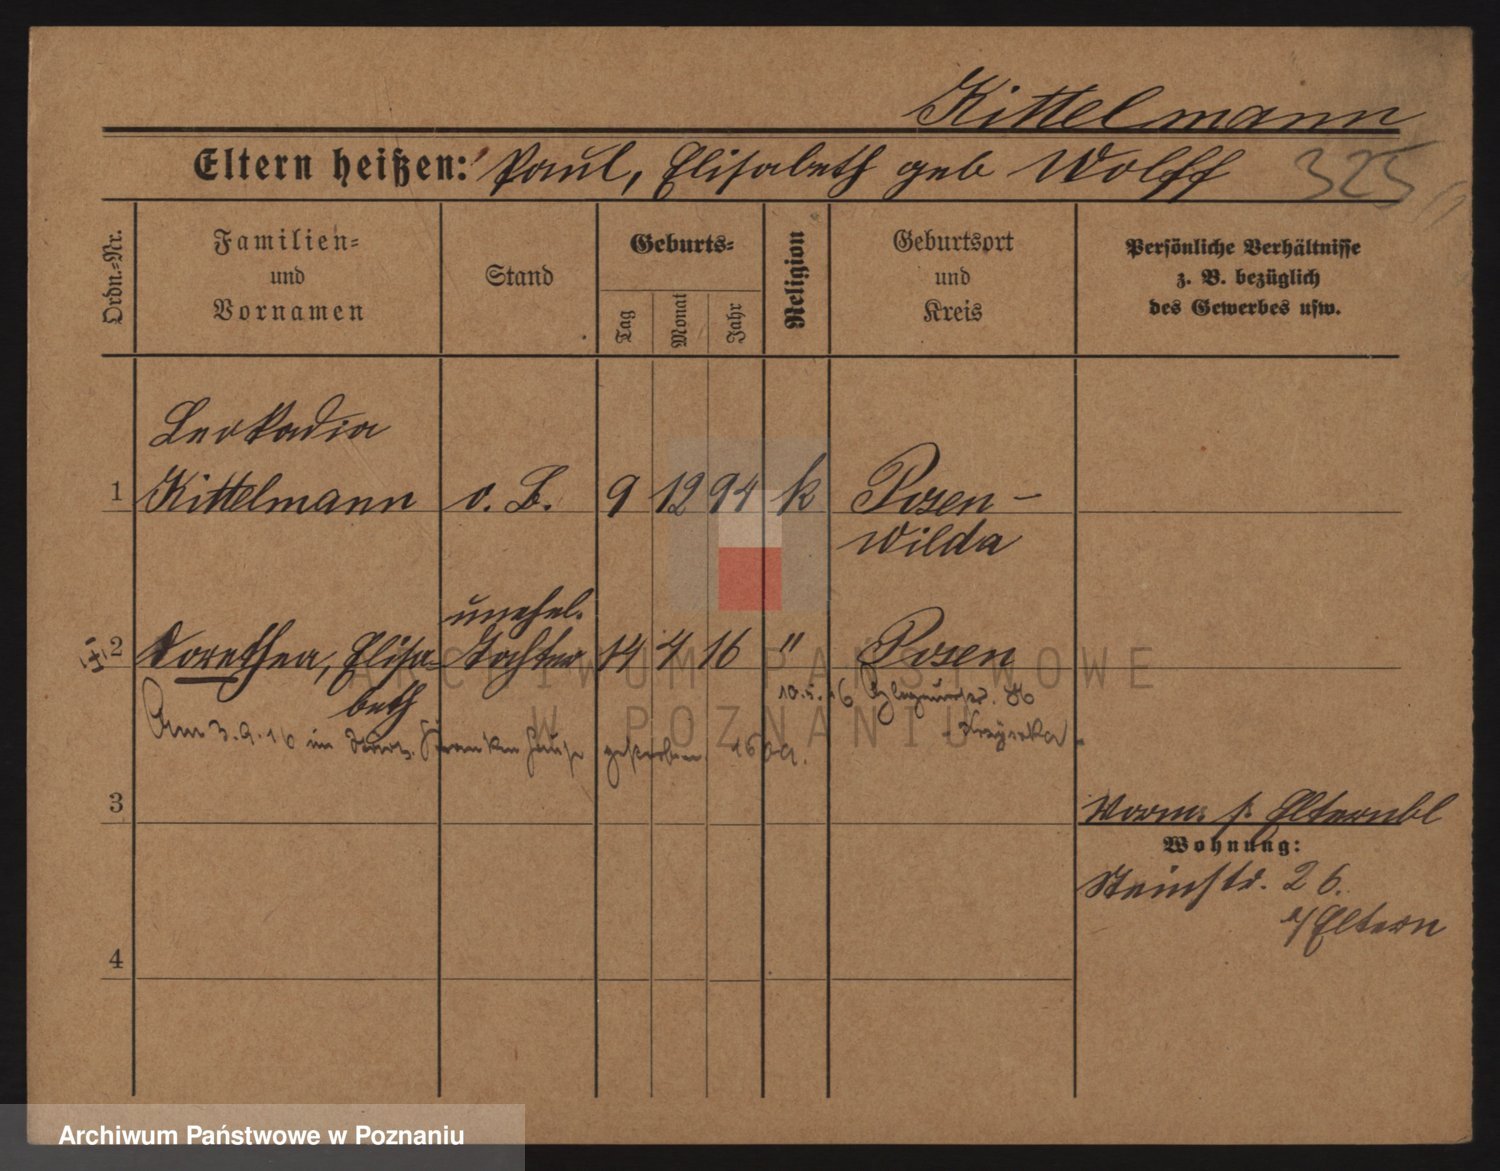 Kittelmann
Eltern heißen: Paul, Elisabeth geb Wolff 325
Ordn.=Nr.
Familien=
und
Vornamen
Stand
Geburts=
Tag
Monat
Jahr
Religion
Geburtsort
und
Kreis
Persönliche Verhältnisse
z. B. bezüglich
des Gewerbes usw.
Leokadia
1 Kittelmann o. B. 9 12 94 k Posen -
Wilda
unehel.
2 Dorothea, Elisa- Tochter 14 4 16 " Posen
beth
10.5.16
Am 3.9.16 im Krankenhause gestorben
3
Vorm. s. Elternbl
Wohnung:
Steinstr. 26.
b/ Eltern
4
ARCHIWUM PAŃSTWOWE
W POZNANIU
Archiwum Państwowe w Poznaniu